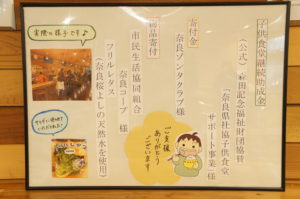 子供食堂継続助成金
(公式) 森田記念福祉財団協賛
「奈良県社協子供食堂
サポート事業」様
寄付金
奈良ゾンタクラブ 様
商品寄付
市民生活協同組合
奈良コープ 様
フリルレタス
(奈良桜よしの天然水を使用)
実際の様子です♪
ご支援
ありがとう
ございます